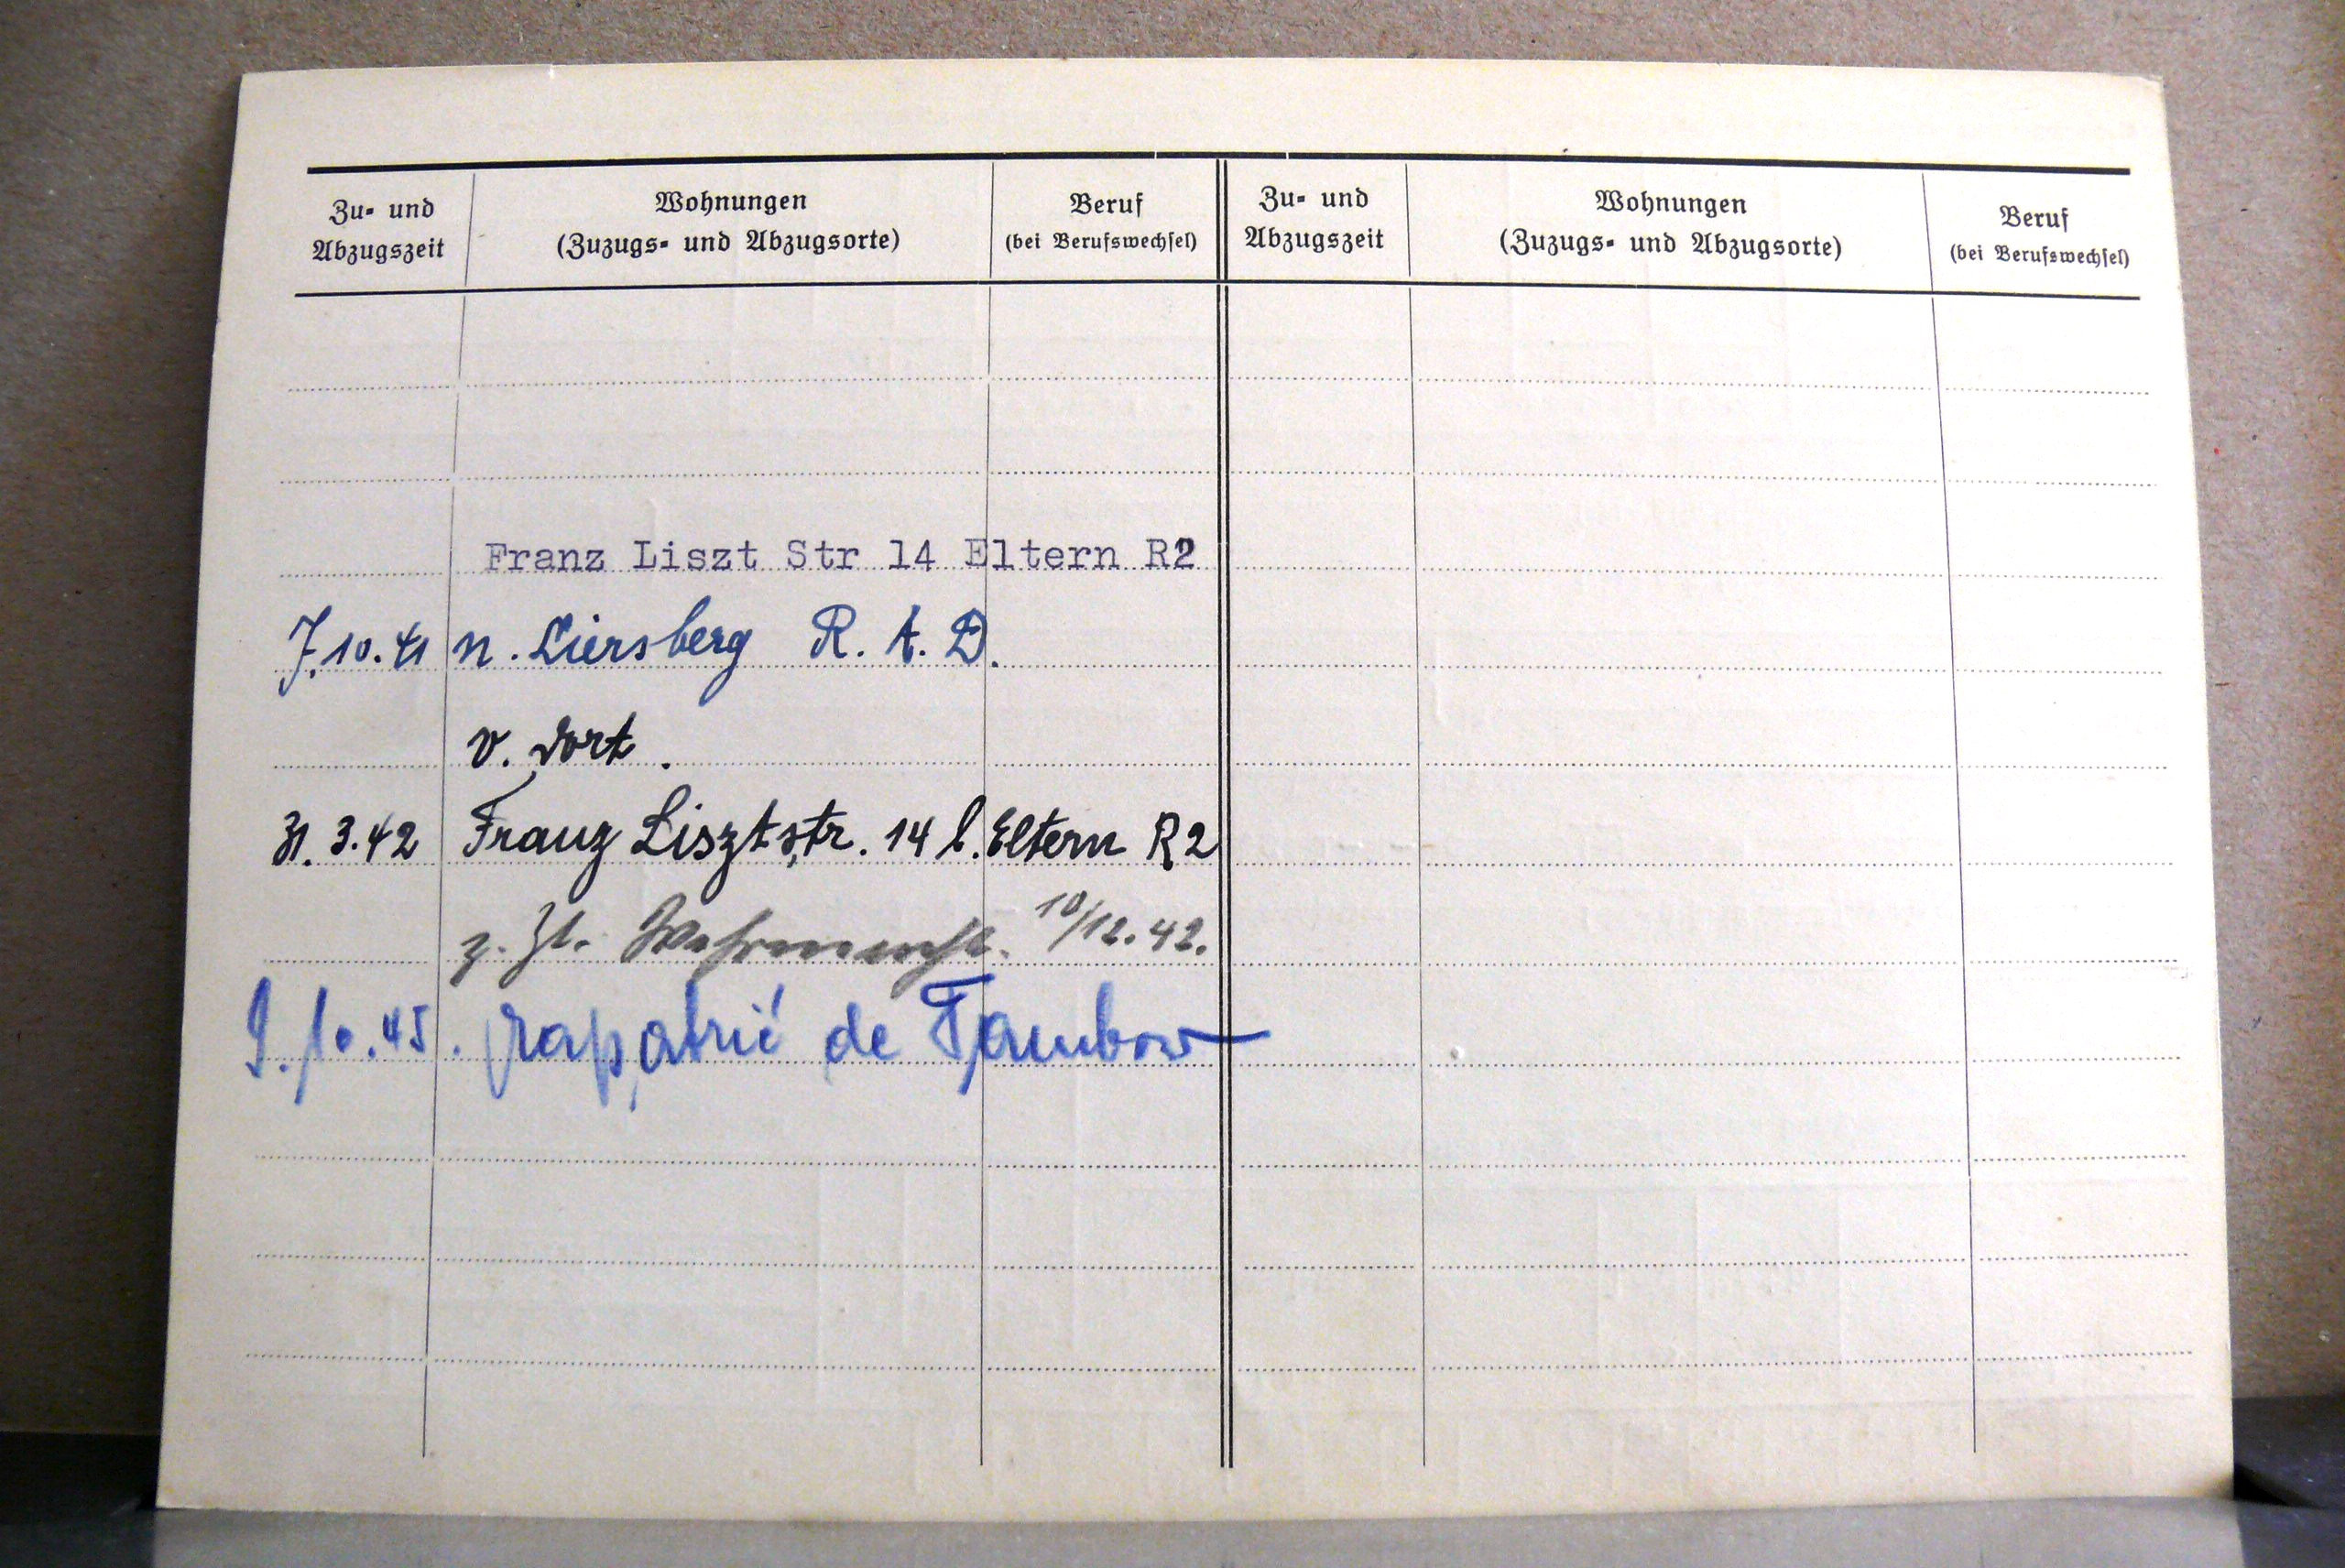 Zu- und Abzugszeit Wohnungen (Zuzugs- und Abzugsorte) Beruf (bei Berufswechsel) Zu- und Abzugszeit Wohnungen (Zuzugs- und Abzugsorte) Beruf (bei Berufswechsel)
Franz Liszt Str 14 Eltern R2
7.10.41 n. Liersberg R. A. D.
v. dort.
31.3.42 Franz Lisztstr. 14 b. Eltern R2
z. Zt. Wehrmacht. 10/12.42.
9.10.45. rapatrié de Tambow